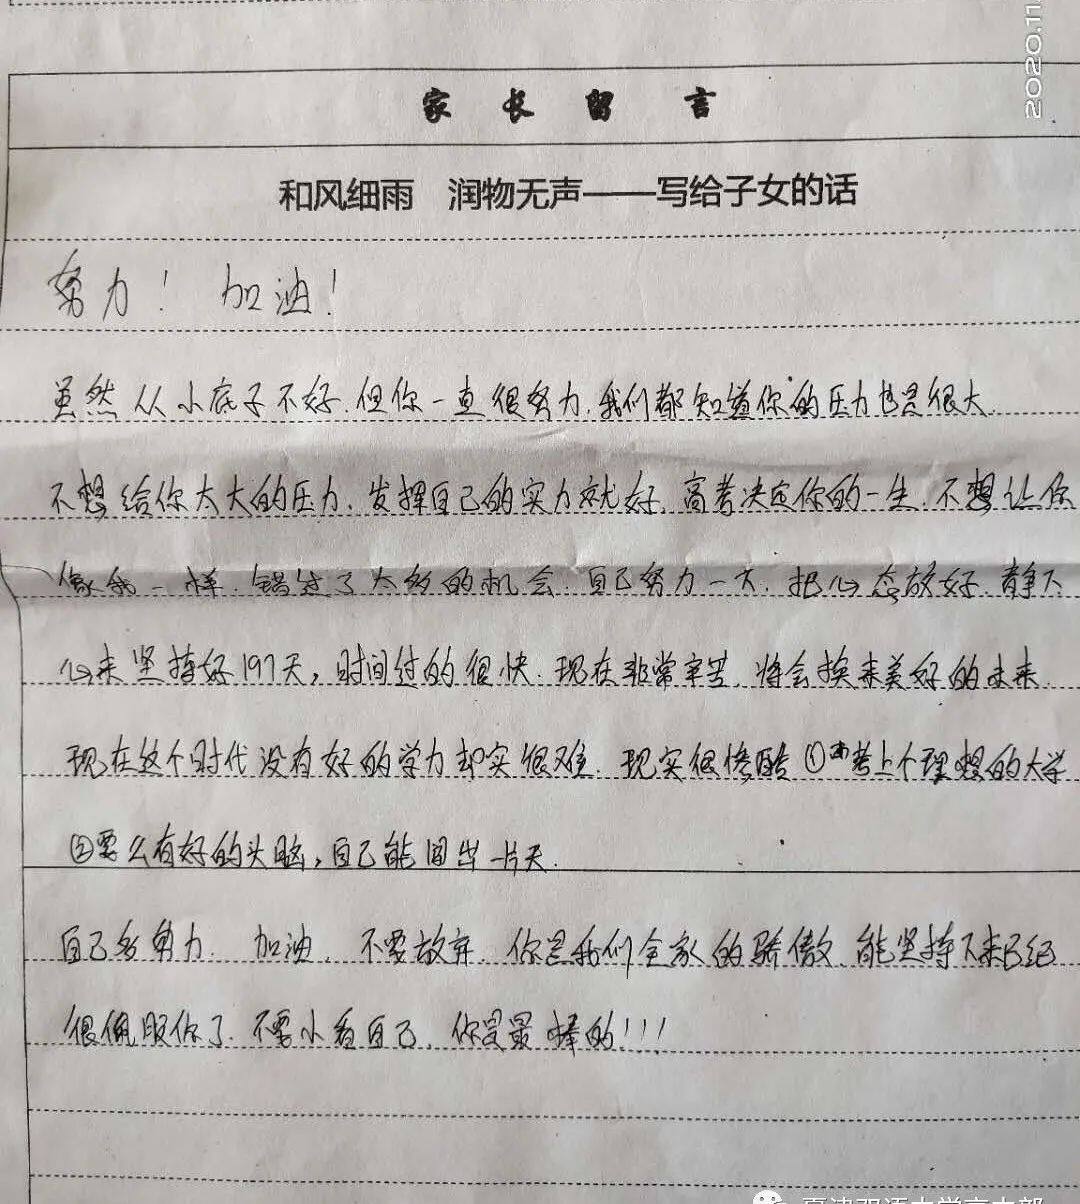 2020.11
家长留言
和风细雨 润物无声——写给子女的话
努力！ 加油！
虽然从小底子不好.但你一直很努力.我们都知道你的压力也是很大.
不想给你太大的压力.发挥自己的实力就好.高考决定你的一生.不想让你
像我一样.错过了太多的机会.自己努力一大.把心态放好.静下
心来坚持好197天，时间过的很快.现在非常辛苦.将会换来美好的未来.
现在这个时代没有好的学力却实很难.现实很惨酷①考上个理想的大学
②要么有好的头脑，自己能闯出一片天.
自己多努力.加油.不要放弃.你是我们全家的骄傲.能坚持下来已经
很佩服你了.不要小看自己.你是最棒的！！！
夏津双语中学高中部